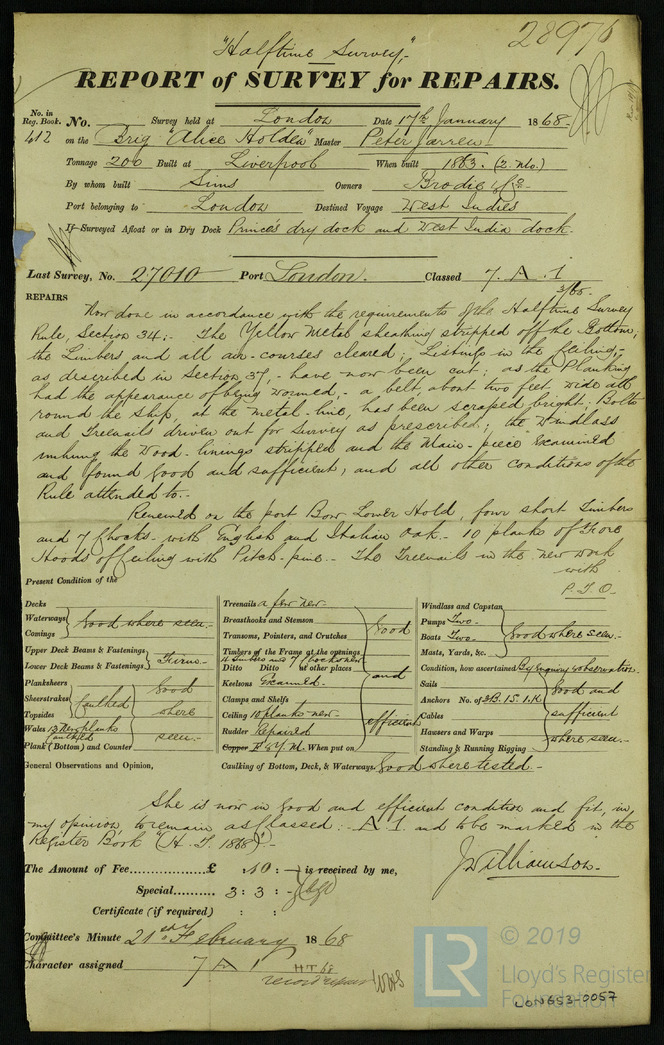 28976
"Halftime Survey,"-
REPORT of SURVEY for REPAIRS.
No. in Reg. Book. No. Survey held at London Date 17th January 1868-
412 on the Brig "Alice Holden" Master Peter Jarren
Tonnage 200 Built at Liverpool When built 1863. (2. Mo.)
By whom built Sims Owners Brodie & Co
Port belonging to London Destined Voyage West Indies
If Surveyed Afloat or in Dry Dock Princes dry dock and West India dock.
Last Survey, No. 27010 Port London. Classed 7. A. 1
3/65.
REPAIRS
Now done in accordance with the requirements of the Halftime Survey
Rule, Section 34:- The Yellow Metal sheathing stripped off the Bottom,
the Limbers and all air-courses cleared; Listings in the Ceiling,-
as described in Section 37,- have now been cut; as the Planking
had the appearance of being wormed,- a belt about two feet wide all
round the Ship, at the metal-line, has been scraped bright; Bolts
and Treenails driven out for Survey as prescribed; the Windlass
unhung the Wood-linings stripped and the Main-piece Examined
and found Good and sufficient; and all other conditions of the
Rule attended to.-
Renewed on the port Bow Lower Hold, four short Timbers
and 7 Chocks- with English and Italian Oak.- 10 planks of Fore
Hoods of Ceiling with Pitch-pine.- The Treenails in the new work
with
P.T.O.
Present Condition of the
Decks
Waterways
Comings
Good where seen.-
Upper Deck Beams & Fastenings
Lower Deck Beams & Fastenings
Firm.-
Planksheers
Sheerstrakes
Topsides
Caulked
Wales 13 New planks caulked
Plank (Bottom) and Counter
Good where seen.-
Treenails a few new.-
Breasthooks and Stemson
Transoms, Pointers, and Crutches
Timbers of the Frame at the openings
Ditto Ditto at other places
Keelsons Examined.-
Clamps and Shelfs
Ceiling 10 planks new.-
Rudder Repaired
Copper F & Y.M. When put on
Good and efficient
Windlass and Capstan
Pumps Two.-
Boats Two.-
Masts, Yards, &c.
Good where seen.-
Condition, how ascertained By enquiry & observation.
Sails
Anchors No. of 3B. 1S. 1.K.
Cables
Hawsers and Warps
Standing & Running Rigging
Good and sufficient where seen.-
General Observations and Opinion,
Caulking of Bottom, Deck, & Waterways. Good where tested.-
She is now in Good and efficient condition and fit, in
my opinion, to remain as Classed:- A.1 and to be marked in the
Register Book (H.T. 1868)".-
The Amount of Fee............£ .10: - is received by me,
Special......... 3: 3: -
JWilliamson.-
Certificate (if required) : :
Committee's Minute 21st February 1868
Character assigned 7 A 1 HT 68
record repairs
© 2019
LR
Lloyd's Register
Foundation
LON653-0057